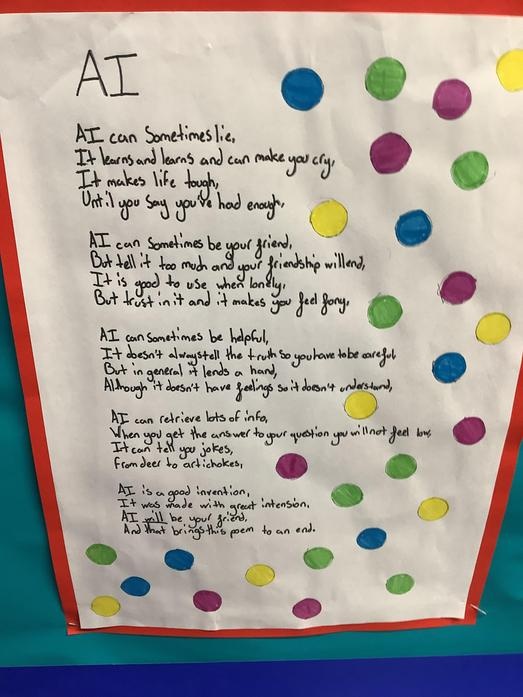 AI
AI can Sometimes lie,
It learns and learns and can make you cry,
It makes life tough,
Until you Say you've had enough,
AI can Sometimes be your friend,
But tell it too much and your friendship will end,
It is good to use when lonely,
But trust in it and it makes you feel fony,
AI can Sometimes be helpful,
It doesn't always tell the truth so you have to be careful,
But in general it lends a hand,
Although it doesn't have feelings so it doesn't understand,
AI can retrieve lots of info,
When you get the answer to your question you will not feel low,
It can tell you jokes,
From deer to artichokes,
AI is a good invention,
It was made with great intension,
AI will be your friend,
And that brings this poem to an end.